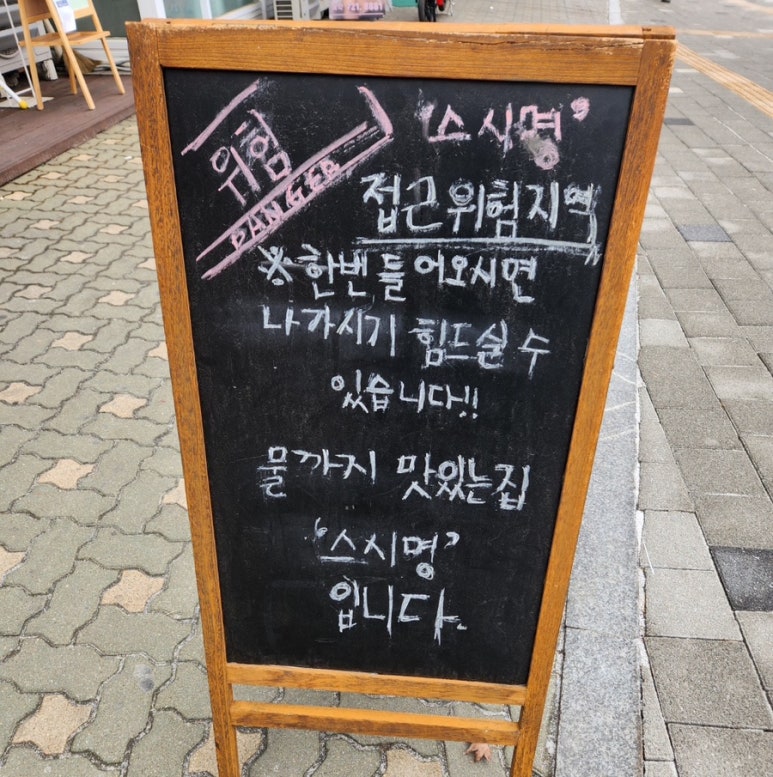 위험
DANGER
'스시명'
접근위험지역
※한번 들어오시면
나가시기 힘드실 수
있습니다!!
물까지 맛있는 집
'스시명'
입니다.